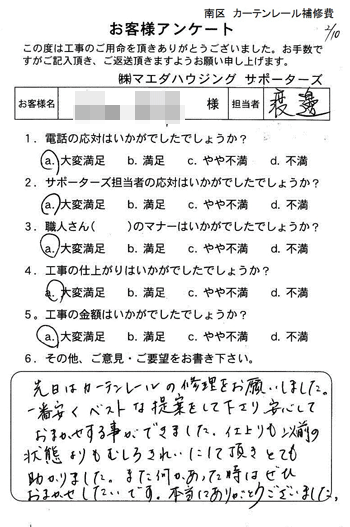 南区 カーテンレール補修費
2/10
お客様アンケート
この度は工事のご用命を頂きありがとうございました。お手数で
すがご記入頂き、ご返送頂きますようお願い申し上げます。
㈱マエダハウジング サポーターズ
お客様名 様 担当者 渡邊
1．電話の応対はいかがでしたでしょうか？
a. 大変満足 b. 満足 c. やや不満 d. 不満
2．サポーターズ担当者の応対はいかがでしたでしょうか？
a. 大変満足 b. 満足 c. やや不満 d. 不満
3．職人さん(　　　)のマナーはいかがでしたでしょうか？
a. 大変満足 b. 満足 c. やや不満 d. 不満
4．工事の仕上がりはいかがでしたでしょうか？
a. 大変満足 b. 満足 c. やや不満 d. 不満
5。工事の金額はいかがでしたでしょうか？
a. 大変満足 b. 満足 c. やや不満 d. 不満
6．その他、ご意見・ご要望をお書き下さい。
先日はカーテンレールの修理をお願いしました。
一番安くベストな提案をして下さり安心して
おまかせする事ができました。仕上りも以前の
状態よりもむしろきれいにして頂きとても
助かりました。また何かあった時はぜひ
おまかせしたいです。本当にありがとうございました。